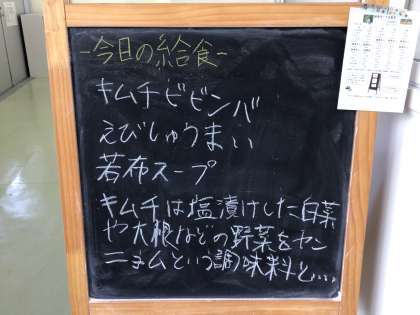 -今日の給食-
キムチビビンバ
えびしゅうまい
若布スープ
キムチは塩漬けした白菜
や大根などの野菜をヤン
ニョムという調味料と、、、